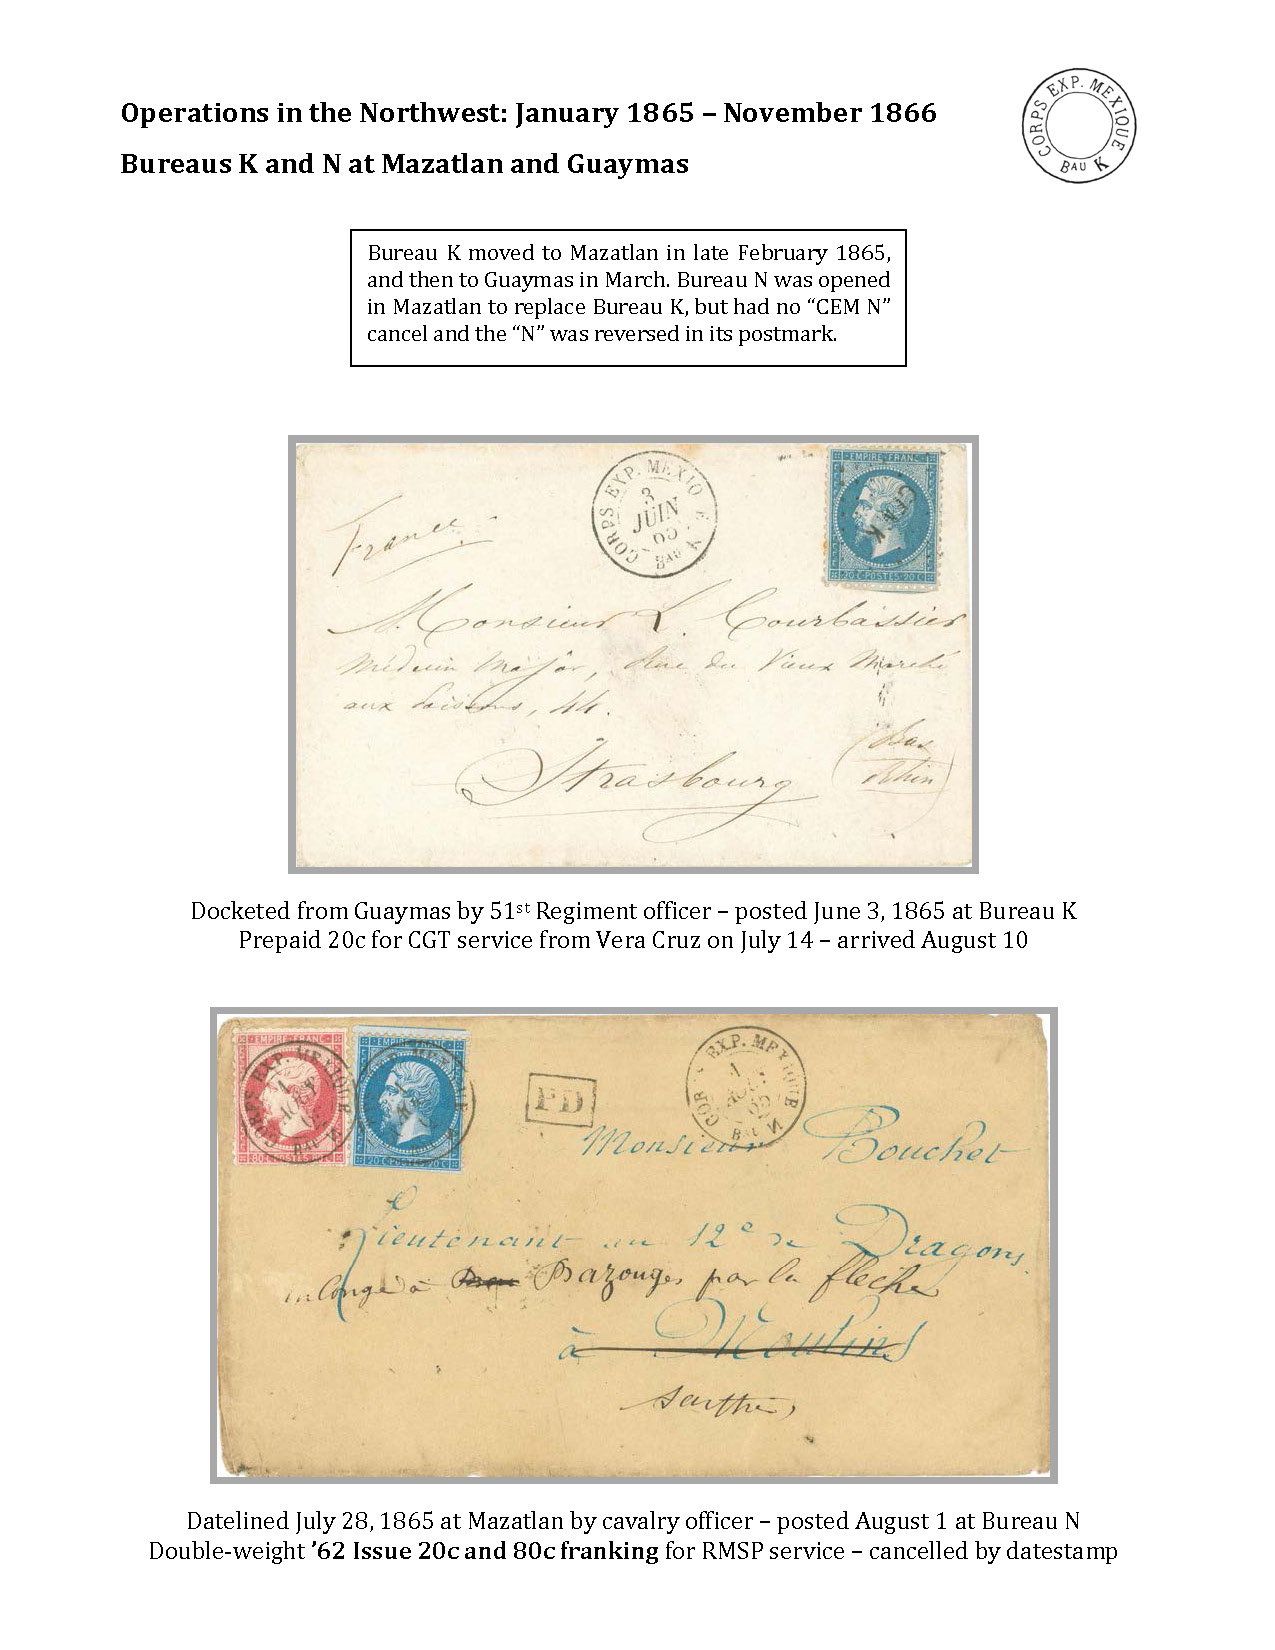 Operations in the Northwest: January 1865 – November 1866
CORPS EXP. MEXIQUE
BAU K
Bureaus K and N at Mazatlan and Guaymas
Bureau K moved to Mazatlan in late February 1865,
and then to Guaymas in March. Bureau N was opened
in Mazatlan to replace Bureau K, but had no “CEM N”
cancel and the “N” was reversed in its postmark.
CORPS EXP. MEXIQ E
3
JUIN
65
BAU K
EMPIRE FRANC
CEM K
20 C POSTES 20 C
France
Monsieur L. Courbassier
Médecin Major, Rue du Vieux Marché
aux Poissons, 44.
Strasbourg
(Bas
Rhin)
Docketed from Guaymas by 51st Regiment officer – posted June 3, 1865 at Bureau K
Prepaid 20c for CGT service from Vera Cruz on July 14 – arrived August 10
EMPIRE FRANC
CORPS EXP. MEXIQUE
80 C POSTES
20 C POSTES 20 C
PD
COR EXP. MEXIQUE
1
AOUT
65
BAU N
Monsieur Bouchet
Lieutenant au 12e de Dragons
en congé à Bazouges par la flèche
à Moulins
Sarthe
Datelined July 28, 1865 at Mazatlan by cavalry officer – posted August 1 at Bureau N
Double-weight ’62 Issue 20c and 80c franking for RMSP service – cancelled by datestamp